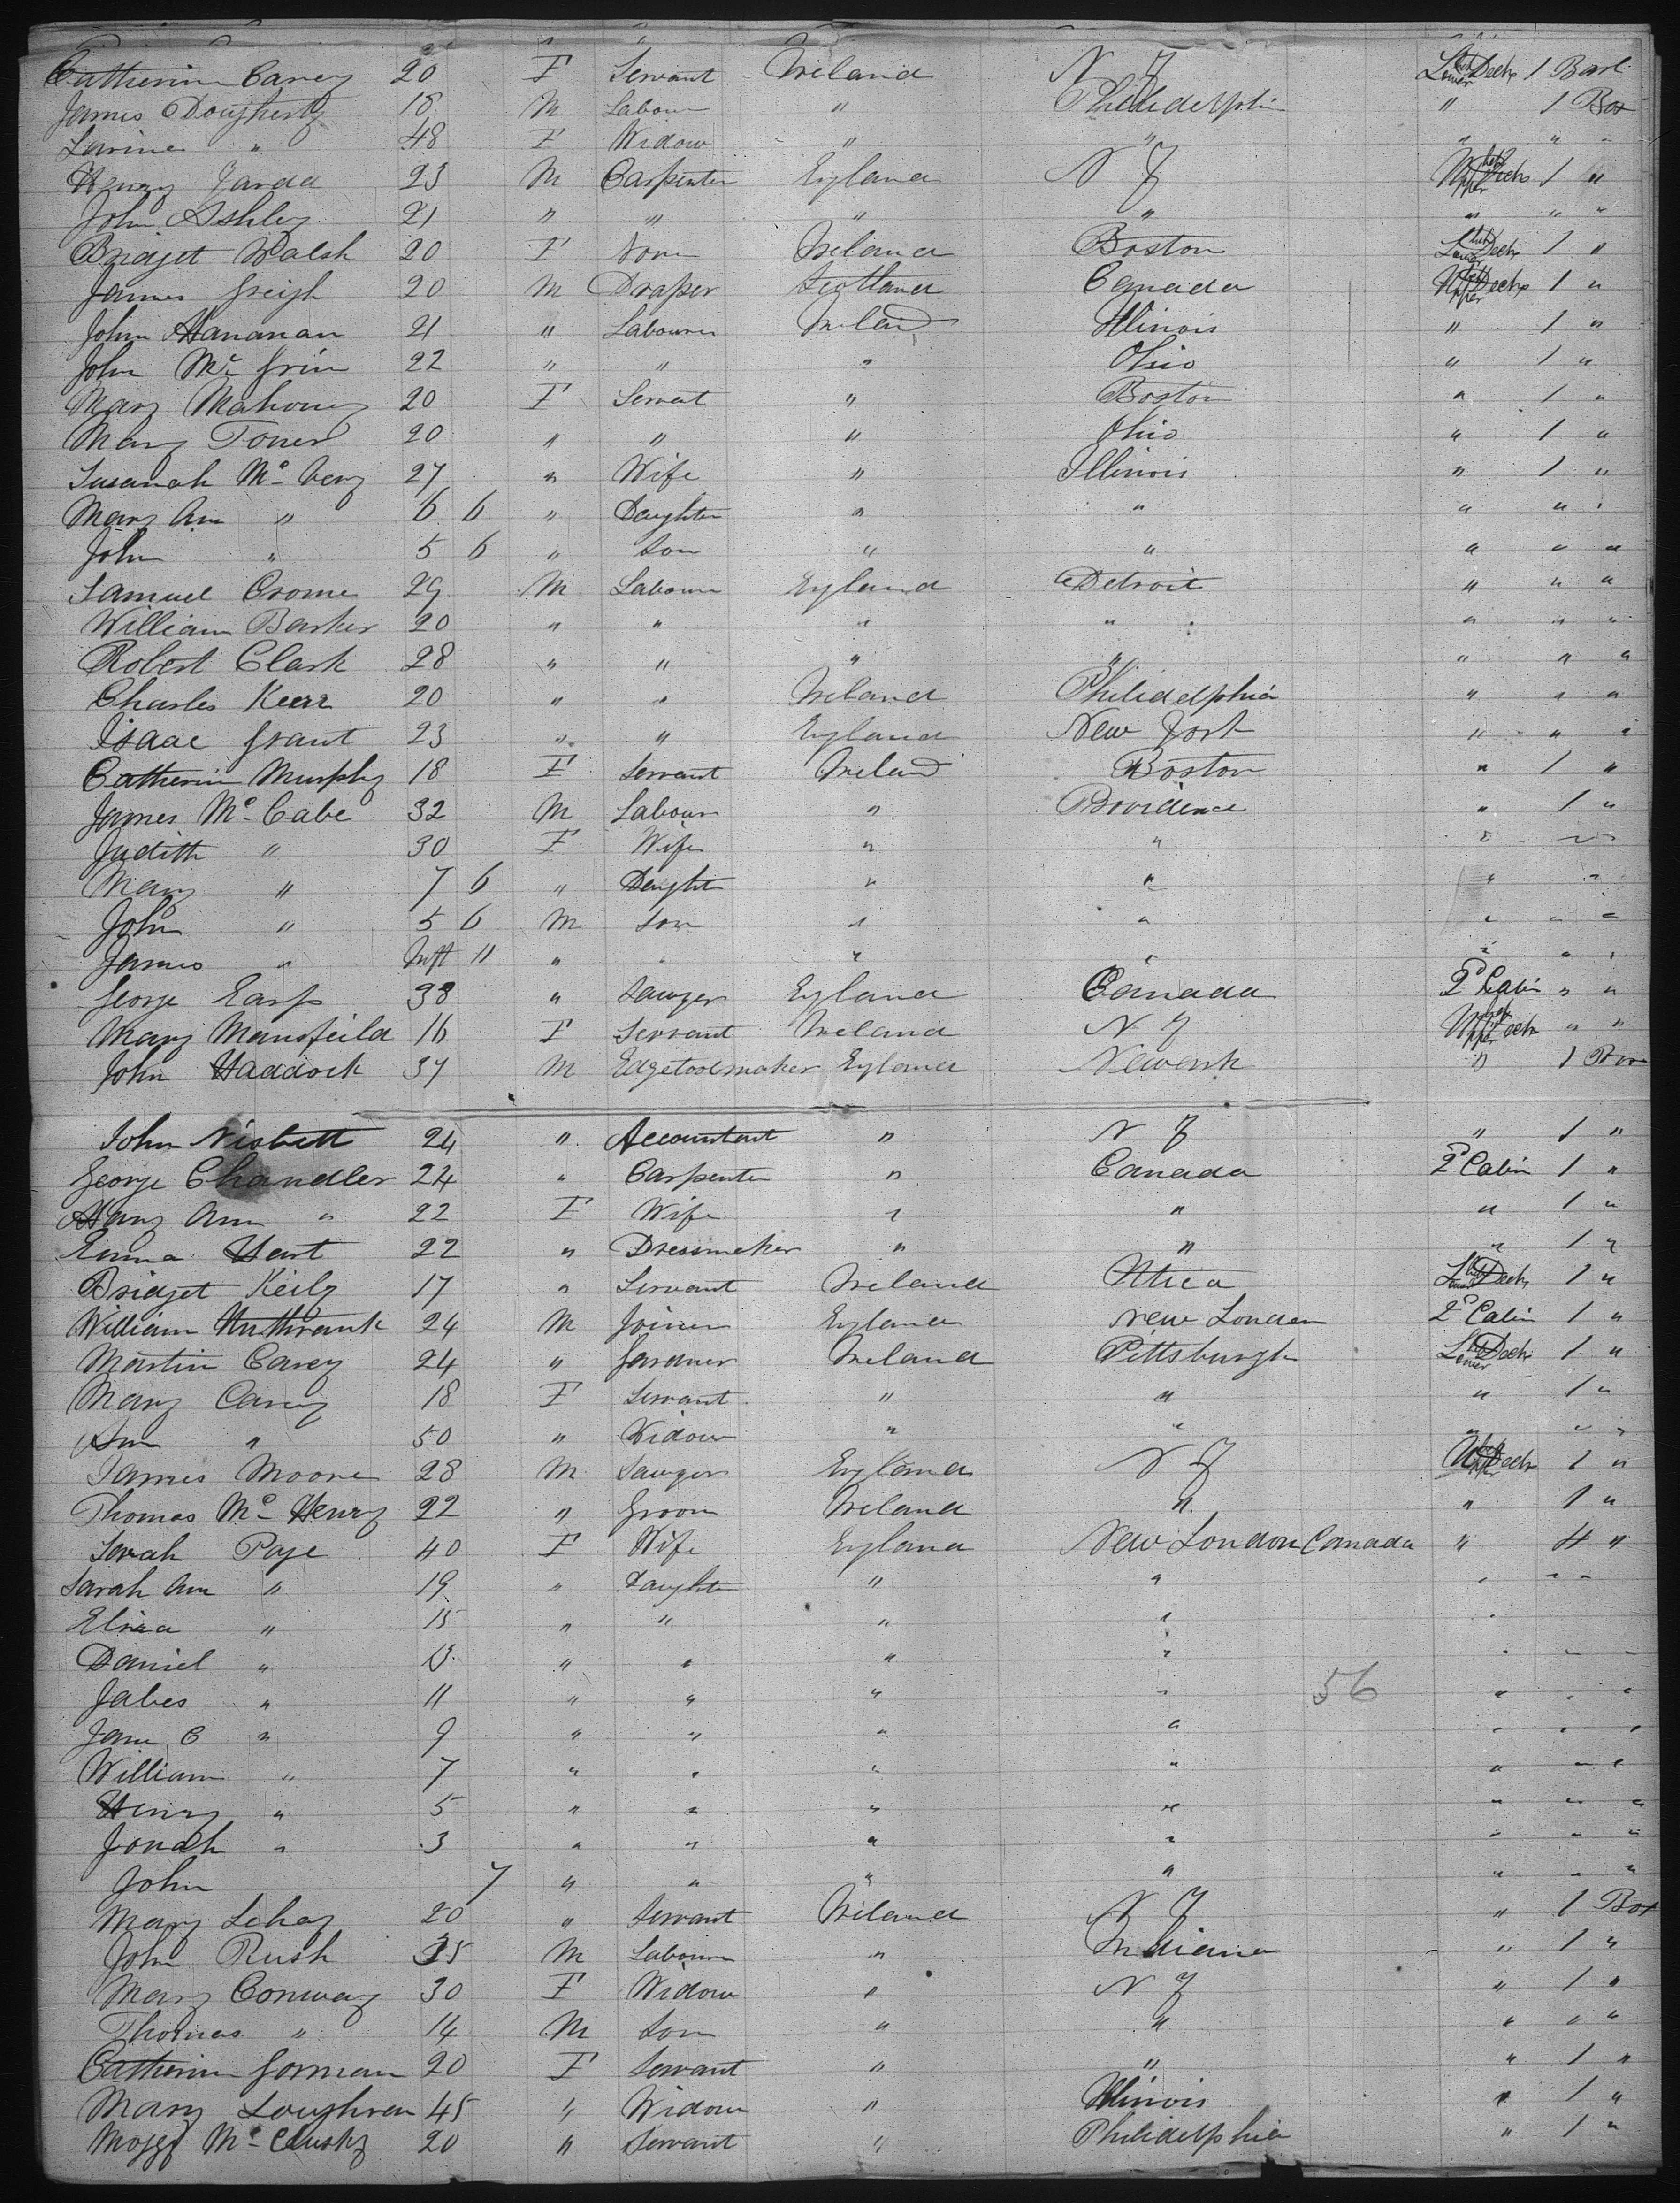 Catherine Carey 20 F Servant Ireland N Y Lower Deck 1 Box
James Dougherty 18 M Labour " Philidelphia " 1 Box
Lavinea " 48 F Widow " " " " "
Henry Jarda 23 M Carpenter England N Y Upper Deck 1 "
John Ashley 21 " " " " " " "
Bridget Walsh 20 F None Ireland Boston Lower Deck 1 "
James Greigh 20 M Draper Scotland Canada Upper Deck 1 "
John Hananan 21 " Labourer Ireland Illinois " 1 "
John Mc Grin 22 " " " Ohio " 1 "
Mary Mahoney 20 F Servat " Boston " 1 "
Mary Toner 20 " " " Ohio " 1 "
Susanah Mc Veny 27 " Wife " Illinois " 1 "
Mary Ann " 6 6 " Daughter " " " " "
John " 5 6 " Son " " " " "
Samuel Crome 29 M Labour England Detroit " " "
William Barker 20 " " " " " " "
Robert Clark 28 " " " " " " "
Charles Kerr 20 " " Ireland Philidelphia " " "
Isaac Grant 23 " " England New York " " "
Catherine Murphy 18 F Servant Ireland Boston " 1 "
James Mc Cabe 32 M Labour " Providence " 1 "
Judith " 30 F Wife " " " " "
Mary " 7 6 " Daught " " " "
John " 5 6 M Son " " " " "
James " Inft 11 " " " " " " "
George Earp 38 " Sawyer England Canada 2d Cabin " "
Mary Mansfeild 16 F Servant Ireland N Y Upper Deck " "
John Haddock 37 M Edgetoolmaker England Newark " 1 Box
John Nisbett 24 " Accountant " N Y " 1 "
George Chandler 24 " Carpenter " Canada 2d Cabin 1 "
Mary Ann " 22 F Wife " " " 1 "
Emma Hart 22 " Dressmaker " " " 1 "
Bridget Keily 17 " Servant Ireland Utica Lower Deck 1 "
William 24 M Joiner England New London 2d Cabin 1 "
Martin Carey 24 " Gardner Ireland Pittsburgh Lower Deck 1 "
Mary Carey 18 F Servant " " " 1 "
Ann " 50 " Widow " " " " "
James Moore 28 M Sawyer England N Y Upper Deck 1 "
Thomas Mc Henry 22 " Groom Ireland " " 1 "
Sarah Page 40 F Wife England New London Canada " 4 "
Sarah Ann " 19 " Daughter " " " " "
Eliza " 15 " " " " "
Daniel " 13 " " " " " " "
Jabes " 11 " " " " 56 " " "
Jane C " 9 " " " " " " "
William " 7 " " " " " " "
Henry " 5 " " " " " " "
Jonah " 3 " " " " " " "
John 7 " " " " " " "
Mary Lehay 20 " Servant Ireland N Y " 1 Box
John Rush 35 M Labour " Indiana " 1 "
Mary Conway 30 F Widow " N Y " 1 "
Thomas " 14 M Son " " " " "
Catherine Gorman 20 F Servant " " " 1 "
Mary Loughren 45 " Widow " Illinois " 1 "
Moggy Mc Clusky 20 " Servant " Philidelphia " 1 "